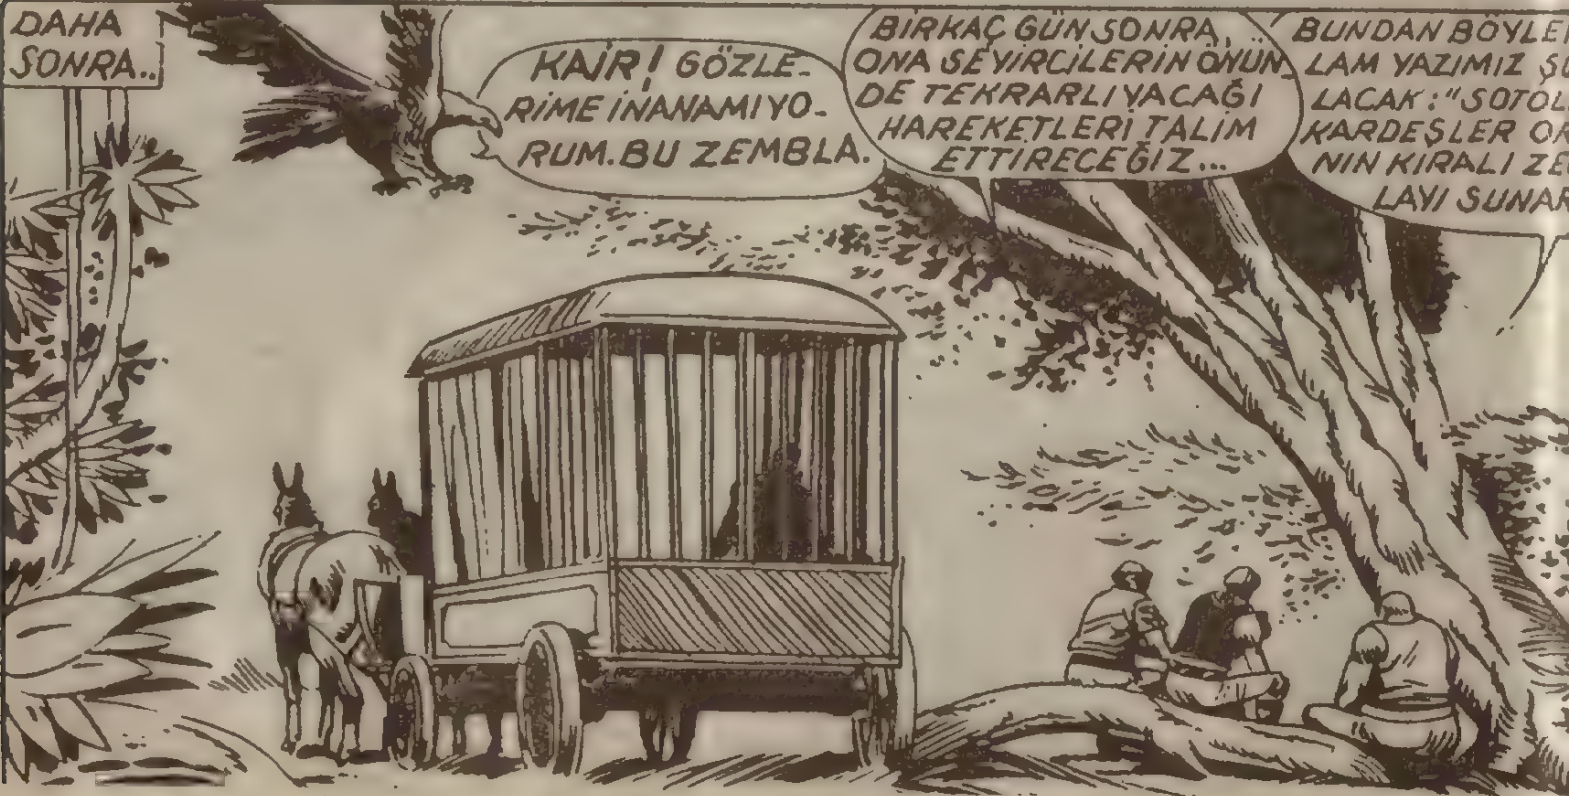 DAHA
SONRA..
KAİR! GÖZLE-
RİME İNANAMIYO-
RUM. BU ZEMBLA.
BİRKAÇ GÜN SONRA,
ONA SEYİRCİLERİN ÖNÜN-
DE TEKRARLIYACAĞI
HAREKETLERİ TALİM
ETTİRECEĞİZ...
BUNDAN BÖYLE
LAM YAZIMIZ
LACAK: "SOTOL
KARDEŞLER OR
NIN KIRALI ZE
LAYI SUNAR